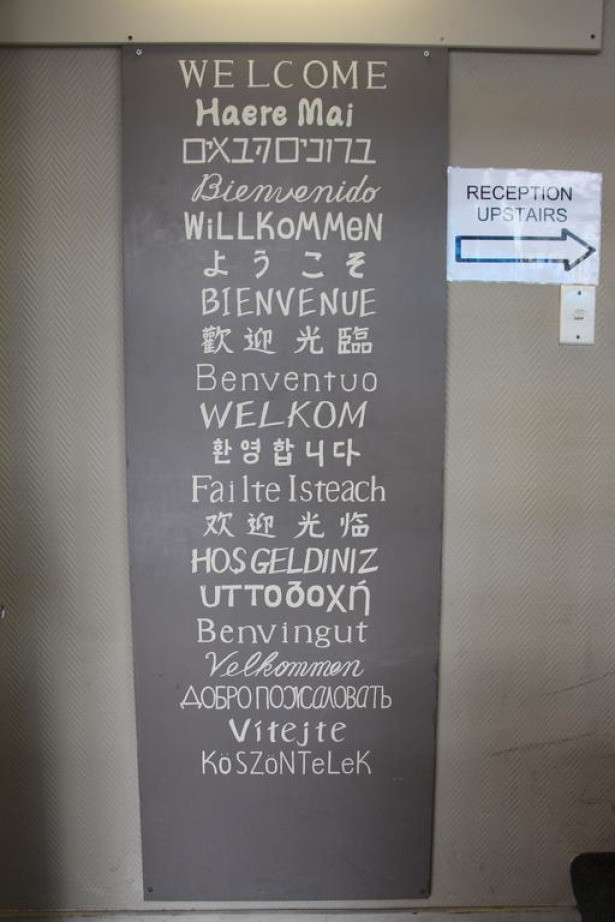 WELCOME
Haere Mai
ברוכים הבאים
Bienvenido
WiLLKoMMeN
ようこそ
BIENVENUE
歡迎光臨
Benventuo
WELKOM
환영합니다
Failte Isteach
欢迎光临
HOŞ GELDINIZ
υττοδοχή
Benvingut
Velkommen
ДОБРО ПОЖАЛОВАТЬ
Vítejte
KöSZöNTeLeK
RECEPTION
UPSTAIRS